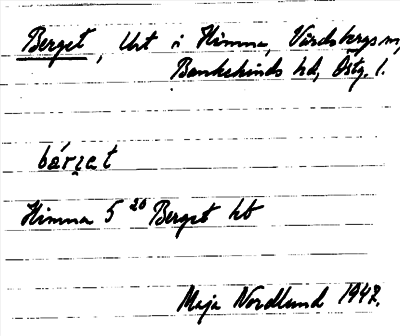 Berget, Urt i Himna, Vårdsbergs sn,
Bankekinds hd, Östg. l.
bárgat
Himna 5 26 Berget hb
Maja Nordlund 1947.